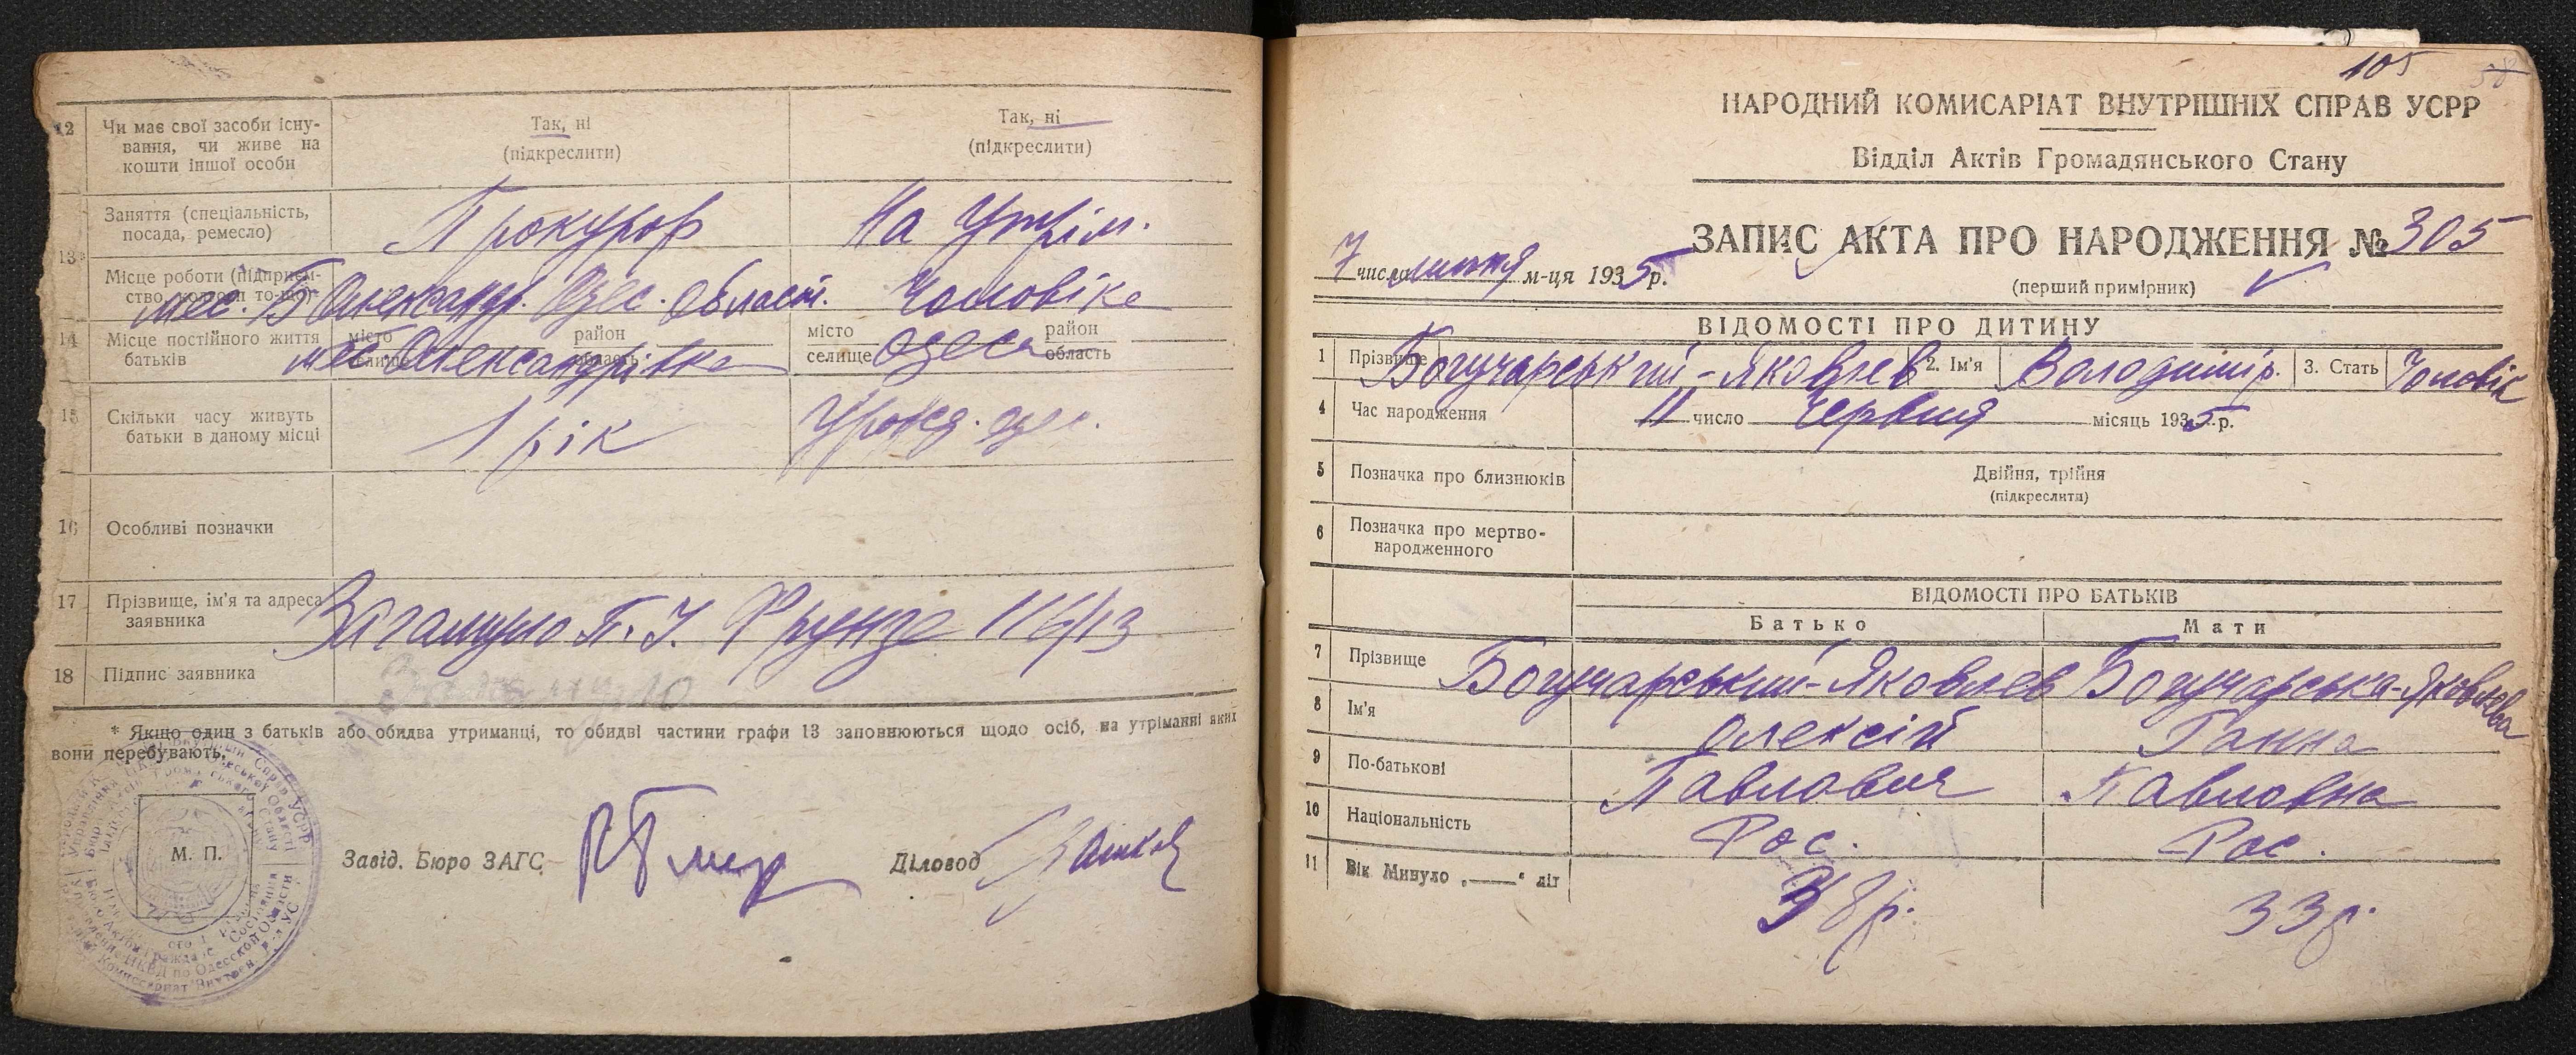 12 Чи має свої засоби існування, чи живе на кошти іншої особи
Так, ні
(підкреслити)
Так, ні
(підкреслити)
13*
Заняття (спеціальність, посада, ремесло)
Прокурор
На Утрім.
Місце роботи (підприємство, колгосп то-що)
мес. Б Олександр. Одес. област.
Чоловіка
14 Місце постійного життя батьків
місто
селище
район
область
мес. Олександрівка
місто
селище
район
область
Одеса
15 Скільки часу живуть батьки в даному місці
1 рік
Урожд. одес.
16 Особливі позначки
17 Прізвище, ім'я та адреса заявника
П. І. Фрунзе 116/13
18 Підпис заявника
* Якщо один з батьків або обидва утриманці, то обидві частини графи 13 заповнюються щодо осіб, на утриманні яких
вони перебувають.
М. П.
Завід. Бюро ЗАГС
Діловод
105
58
НАРОДНИЙ КОМИСАРІАТ ВНУТРІШНІХ СПРАВ УСРР
Відділ Актів Громадянського Стану
ЗАПИС АКТА ПРО НАРОДЖЕННЯ № 305
7 число липня м-ця 1935 р.
(перший примірник)
ВІДОМОСТІ ПРО ДИТИНУ
1 Прізвище Богучарський-Яковлев 2. Ім'я Володимір. 3. Стать Чоловік
4 Час народження 11 число Червня місяць 1935 р.
5 Позначка про близнюків Двійня, трійня
(підкреслити)
6 Позначка про мертвонародженного
ВІДОМОСТІ ПРО БАТЬКІВ
Батько Мати
7 Прізвище Богучарський-Яковлев Богучарська-Яковлева
8 Ім'я Олексій Ганна
9 По-батькові Павлович Павловна
10 Національність Рос. Рос.
11 Вік Минуло „——“ літ 38 р. 33 р.